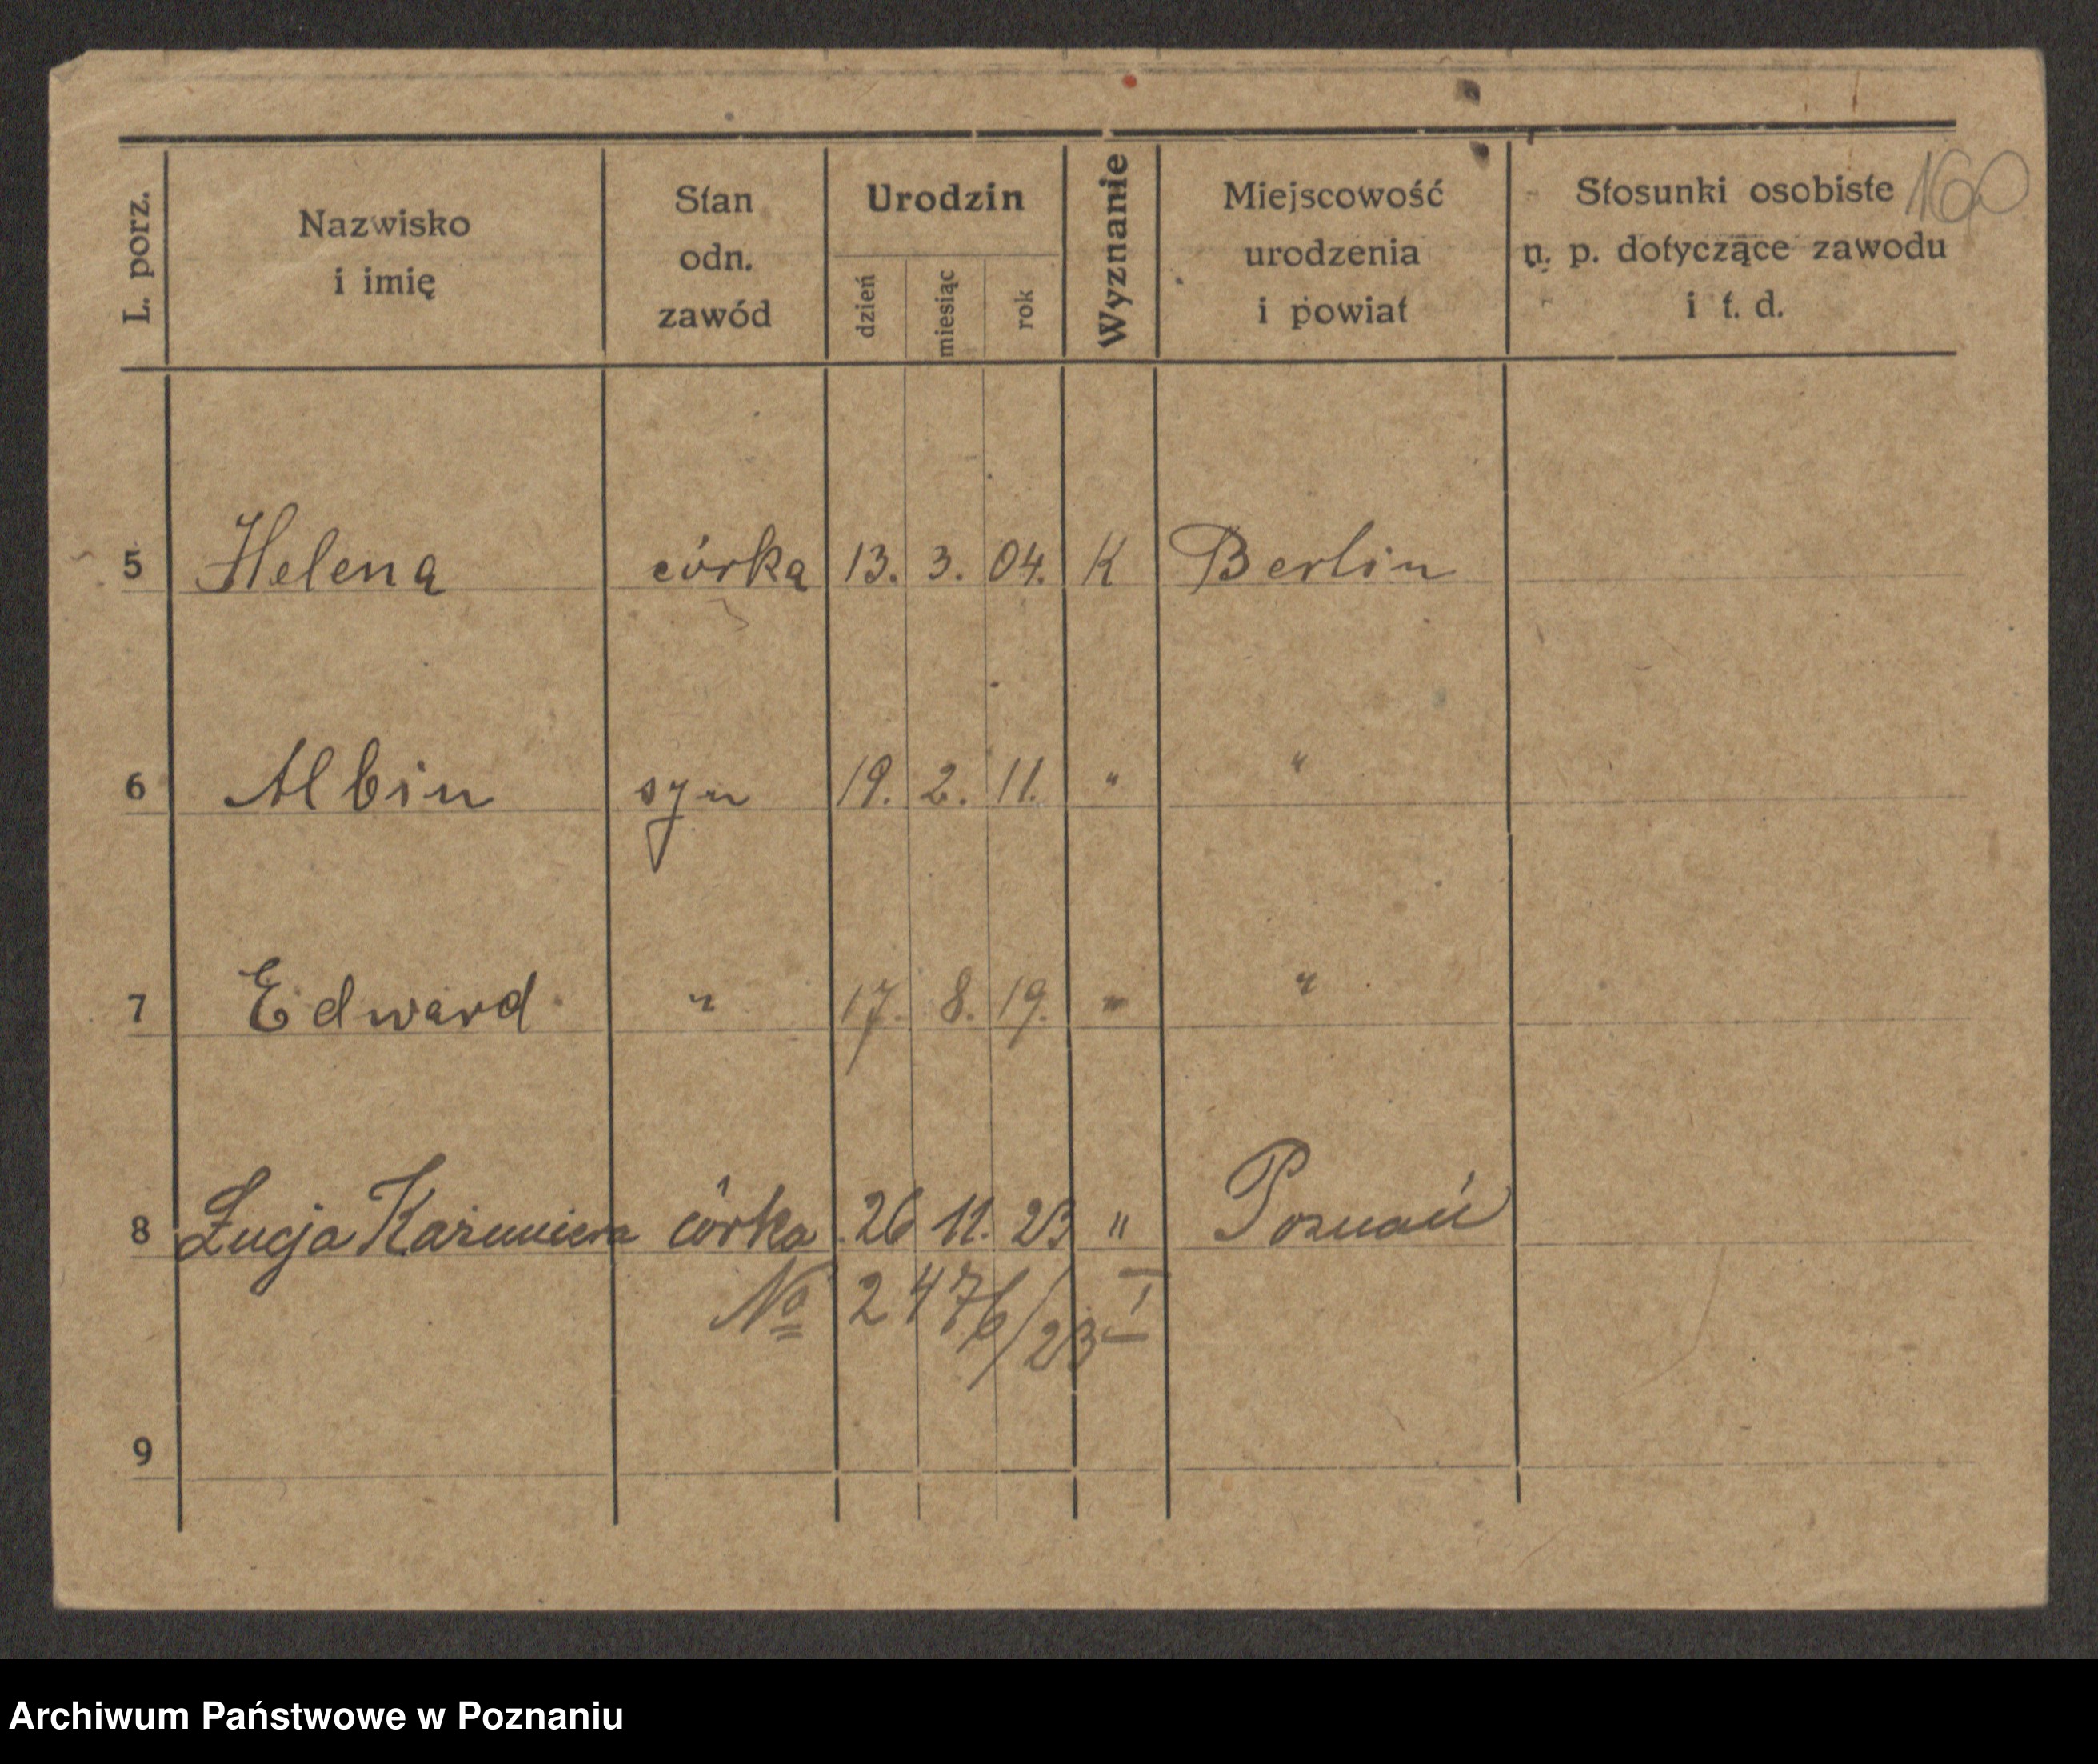 160
L. porz.
Nazwisko
i imię
Stan
odn.
zawód
Urodzin
dzień
miesiąc
rok
Wyznanie
Miejscowość
urodzenia
i powiat
Stosunki osobiste
n. p. dotyczące zawodu
i t. d.
5 Helena córka 13. 3. 04. K Berlin
6 Albin syn 19. 2. 11. " "
7 Edward " 17. 8. 19. " "
8 Łucja Kazimiera córka 26 11. 23 " Poznań
№ 2476/23 I
9
Archiwum Państwowe w Poznaniu